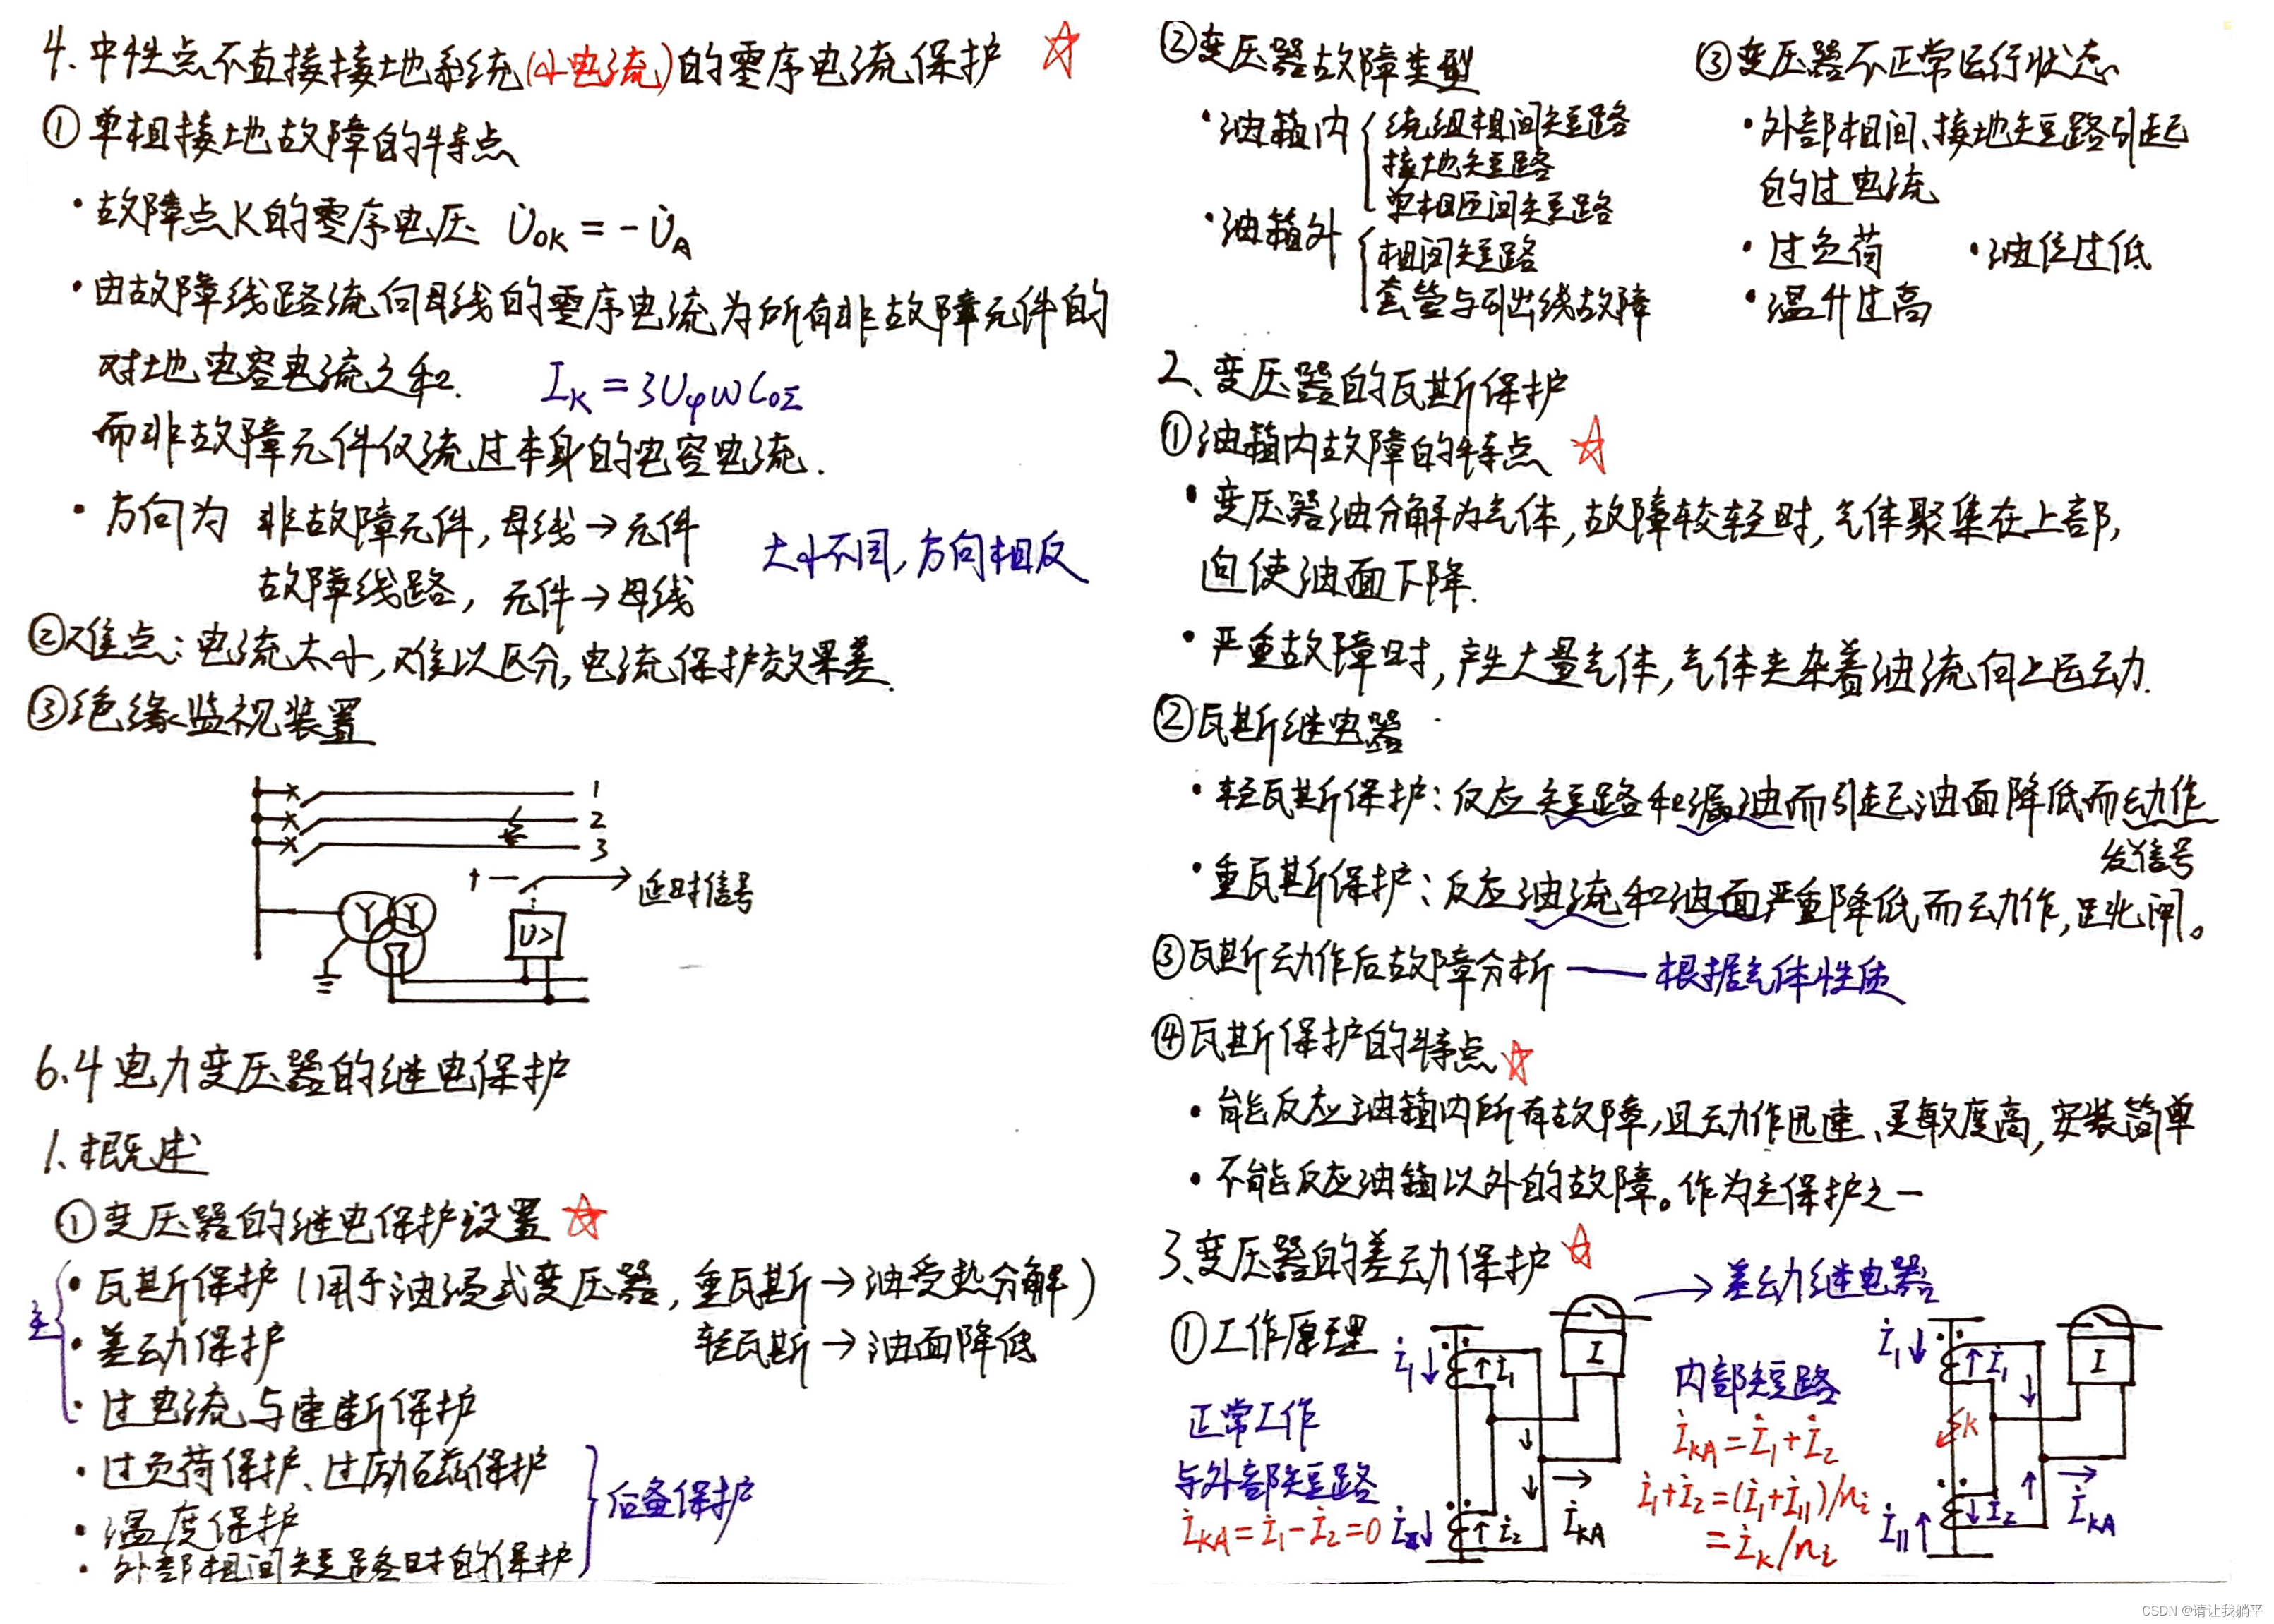 4. 中性点不直接接地系统(小电流)的零序电流保护 ☆
① 单相接地故障的特点
· 故障点K的零序电压 U̇OK = -U̇A
· 由故障线路流向母线的零序电流为所有非故障元件的
对地电容电流之和. IK = 3UφωC0Σ
而非故障元件仅流过本身的电容电流.
· 方向为 非故障元件, 母线→元件
故障线路, 元件→母线
大小不同, 方向相反
②难点: 电流太小, 难以区分, 电流保护效果差.
③绝缘监视装置
1
2
3
+ —
→延时信号
Y Y
U>
6.4 电力变压器的继电保护
1. 概述
①变压器的继电保护设置 ☆
主
· 瓦斯保护 (用于油浸式变压器, 重瓦斯→油受热分解)
轻瓦斯→油面降低
· 差动保护
· 过电流与速断保护
· 过负荷保护、过励磁保护
· 温度保护
· 外部相间短路时的保护
后备保护
②变压器故障类型
· 油箱内 { 绕组相间短路
接地短路
单相匝间短路
· 油箱外 { 相间短路
套管与引出线故障
③变压器不正常运行状态
· 外部相间、接地短路引起
的过电流
· 过负荷 · 油位过低
· 温升过高
2、变压器的瓦斯保护
①油箱内故障的特点 ☆
· 变压器油分解为气体, 故障较轻时, 气体聚集在上部,
迫使油面下降.
· 严重故障时, 产生大量气体, 气体夹杂着油流向上运动.
②瓦斯继电器
· 轻瓦斯保护: 反应短路和漏油而引起油面降低而动作
发信号
· 重瓦斯保护: 反应油流和油面严重降低而动作, 跳闸。
③瓦斯动作后故障分析 —— 根据气体性质
④瓦斯保护的特点 ☆
· 能反应油箱内所有故障, 且动作迅速、灵敏度高, 安装简单
· 不能反应油箱以外的故障。作为主保护之一
3、变压器的差动保护 ☆
→差动继电器
①工作原理
正常工作
与外部短路
İKA = İ1 - İ2 = 0
İI↓
↑İ1
I
İII↓
↑İ2
İKA
内部短路
İKA = İ1 + İ2
İ1 + İ2 = (İI + İII)/ni
= İK/ni
İI↓
↑İ1
I
K
İII↑
↓İ2
İKA
CSDN @请让我躺平